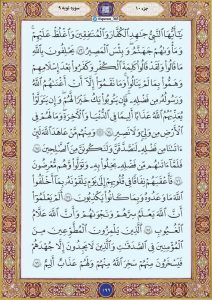 جزء ۱۰
سوره توبه ۹
يَٰٓأَيُّهَا ٱلنَّبِىُّ جَٰهِدِ ٱلْكُفَّارَ وَٱلْمُنَٰفِقِينَ وَٱغْلُظْ عَلَيْهِمْ
وَمَأْوَىٰهُمْ جَهَنَّمُ وَبِئْسَ ٱلْمَصِيرُ ٧٣ يَحْلِفُونَ بِٱللَّهِ
مَا قَالُوا۟ وَلَقَدْ قَالُوا۟ كَلِمَةَ ٱلْكُفْرِ وَكَفَرُوا۟ بَعْدَ إِسْلَٰمِهِمْ
وَهَمُّوا۟ بِمَا لَمْ يَنَالُوا۟ وَمَا نَقَمُوٓا۟ إِلَّآ أَنْ أَغْنَىٰهُمُ ٱللَّهُ
وَرَسُولُهُۥ مِن فَضْلِهِۦ فَإِن يَتُوبُوا۟ يَكُ خَيْرًا لَّهُمْ وَإِن يَتَوَلَّوْا۟
يُعَذِّبْهُمُ ٱللَّهُ عَذَابًا أَلِيمًا فِى ٱلدُّنْيَا وَٱلْءَاخِرَةِ وَمَا لَهُمْ فِى
ٱلْأَرْضِ مِن وَلِىٍّ وَلَا نَصِيرٍ ٧٤ وَمِنْهُم مَّنْ عَٰهَدَ ٱللَّهَ لَئِنْ
ءَاتَىٰنَا مِن فَضْلِهِۦ لَنَصَّدَّقَنَّ وَلَنَكُونَنَّ مِنَ ٱلصَّٰلِحِينَ ٧٥
فَلَمَّآ ءَاتَىٰهُم مِّن فَضْلِهِۦ بَخِلُوا۟ بِهِۦ وَتَوَلَّوا۟ وَّهُم مُّعْرِضُونَ
٧٦ فَأَعْقَبَهُمْ نِفَاقًا فِى قُلُوبِهِمْ إِلَىٰ يَوْمِ يَلْقَوْنَهُۥ بِمَآ أَخْلَفُوا۟
ٱللَّهَ مَا وَعَدُوهُ وَبِمَا كَانُوا۟ يَكْذِبُونَ ٧٧ أَلَمْ يَعْلَمُوٓا۟
أَنَّ ٱللَّهَ يَعْلَمُ سِرَّهُمْ وَنَجْوَىٰهُمْ وَأَنَّ ٱللَّهَ عَلَّٰمُ
ٱلْغُيُوبِ ٧٨ ٱلَّذِينَ يَلْمِزُونَ ٱلْمُطَّوِّعِينَ مِنَ
ٱلْمُؤْمِنِينَ فِى ٱلصَّدَقَٰتِ وَٱلَّذِينَ لَا يَجِدُونَ إِلَّا جُهْدَهُمْ
فَيَسْخَرُونَ مِنْهُمْ سَخِرَ ٱللَّهُ مِنْهُمْ وَلَهُمْ عَذَابٌ أَلِيمٌ ٧٩
۱۹۹